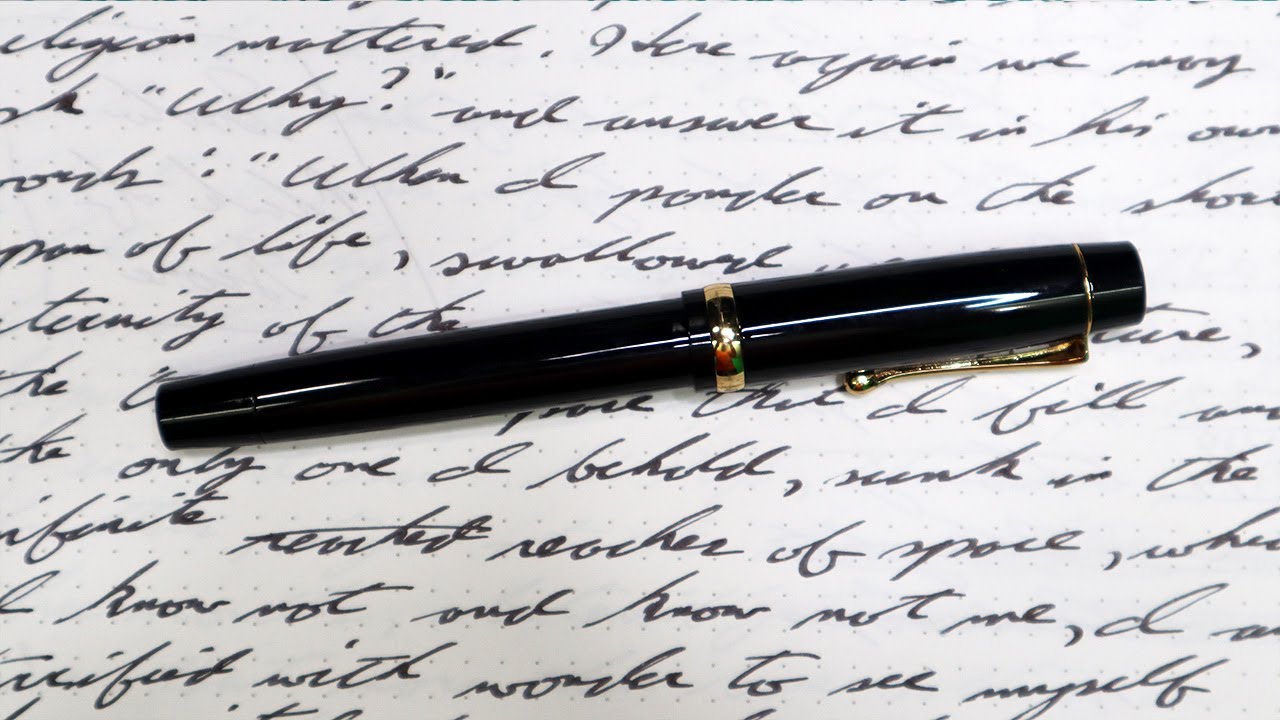 eligion mattered. Here again we may
sk "Why?" and answer it in his own
words: "When I ponder on the shor
span of life, swallowed
ternity of the ture,
the space that I fill and
the only one I behold, sunk in the
nfinite reaches of space, whic
I know not and know not me, I a
trified with wonder to see myself